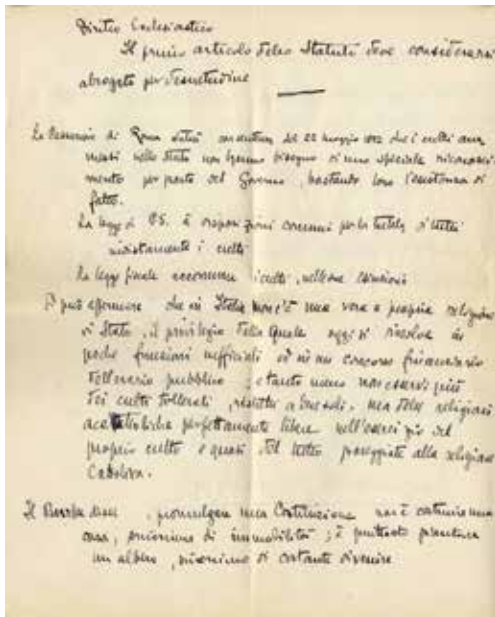 Diritto Ecclesiastico
Il primo articolo dello Statuto deve considerarsi
abrogato per desuetudine
La Cassazione di Roma del 22 maggio che i culti am
messi nello Stato non hanno bisogno di uno speciale riconosci
mento per parte del Governo, bastando loro l'esistenza di
fatto.
La legge di P.S. à disposizioni comuni per la tutela di tutti
indistintamente i culti
La legge penale accomuna i culti
Si può affermare che in Italia non c'è una vera e propria religione
di Stato, il privilegio della quale oggi si risolve in
poche funzioni ufficiali ed in un concorso finanziario
pubblico e tanto meno non esservi più
dei culti tollerati, ma delle religioni
acattoliche perfettamente libere nell'esercizio del
proprio culto e quasi del tutto pareggiate alla religione
Cattolica.
Il promulgare una Costituzione non è costruire una
casa, sinonimo di immobilità; è piuttosto piantare
un albero, sinonimo di costante divenire